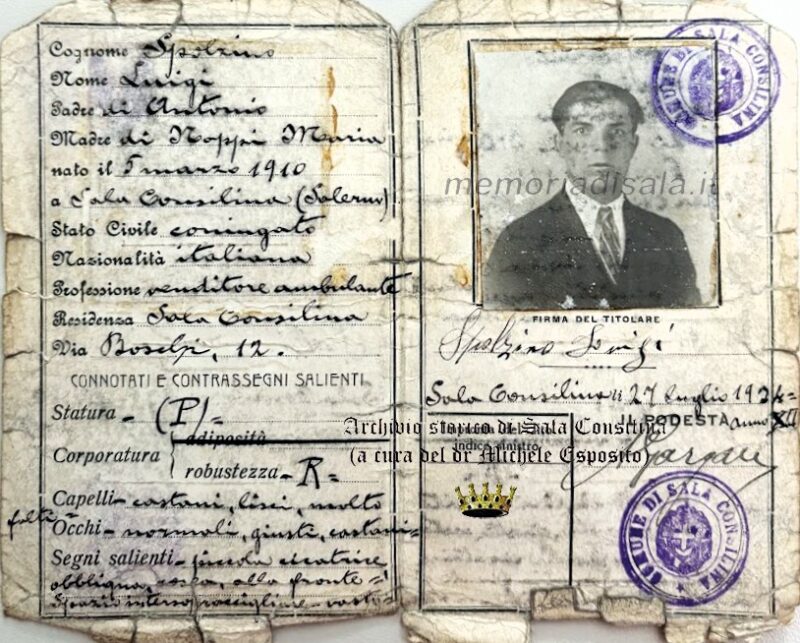 Cognome Spolzino
Nome Luigi
Padre di Antonio
Madre di Noppi Maria
nato il 5 marzo 1910
a Sala Consilina (Salerno)
Stato Civile coniugato
Nazionalità italiana
Professione venditore ambulante
Residenza Sala Consilina
Via Boschi, 12.
CONNOTATI E CONTRASSEGNI SALIENTI
Statura - (P) =
Corporatura
adiposità
robustezza - R =
Capelli - castani, lisci, molto
folti
Occhi - normali, giusti, castani -
Segni salienti - piccola cicatrice
obbliqua, alla fronte =
Spazio intersopraccigliare - vasto
COMUNE DI SALA CONSILINA
memoriadisala.it
FIRMA DEL TITOLARE
Spolzino Luigi
Sala Consilina li 27 luglio 1934 =
IL PODESTÀ anno XII
Archivio storico di Sala Consilina
indice sinistro
(a cura del dr Michele Esposito)
COMUNE DI SALA CONSILINA